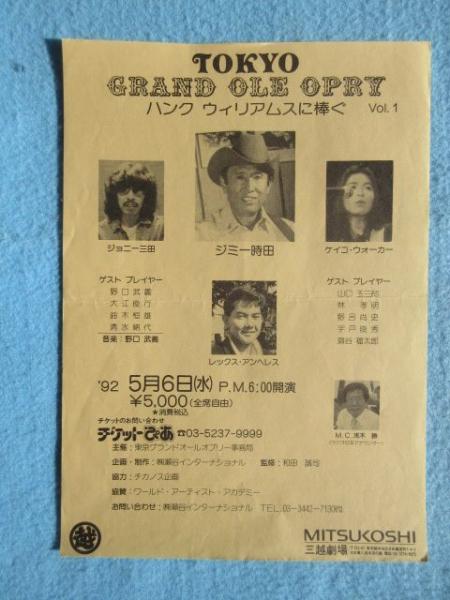 TOKYO
GRAND OLE OPRY
ハンク ウィリアムスに棒ぐ Vol.1
ジョニー三田
ジミー時田
ケイコ・ウォーカー
ゲスト プレイヤー
野口武義
大江俊行
鈴木恒雄
清水絹代
音楽:野口 武義
レックス・アンヘレス
ゲスト プレイヤー
山口玉三郎
林 孝明
野呂尚史
宇戸俊秀
瀬谷福太郎
'92 5月6日(水) P.M.6:00開演
¥5,000(全席自由)
★消費税込
チケットのお問い合わせ
チケットぴあ ☎03-5237-9999
M.C.浅木 勝
主催:東京グランドオールオープリー事務局
企画・制作:㈱瀬谷インターナショナル 監修:和田 誠均
協力:チカノス企画
協賛:ワールド・アーティスト・アカデミー
お問い合わせ:㈱瀬谷インターナショナル TEL.03-3442-7130㈹
越
MITSUKOSHI
三越劇場